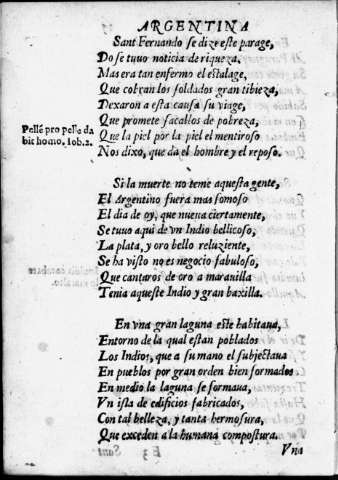 ARGENTINA
Sant Fernando se dize este parage,
Do se tuuo noticia de riqueza,
Mas era tan enfermo el estalage,
Que cobran los soldados gran tibieza,
Dexaron a esta causa su viage,
Que promete sacallos de pobreza,
Que la piel por la piel el mentiroso
Nos dixo, que da el hombre y el reposo.
Pellé pro pelle da
bit homo. Iob. 2.
Si la muerte no teme aquesta gente,
El Argentino fuera mas famoso
El dia de oy, que nueua ciertamente,
Se tuuo aqui de vn Indio bellicoso,
La plata, y oro bello reluziente,
Se ha visto no es negocio fabuloso,
Que cantaros de oro a marauilla
Tenia aqueste Indio y gran baxilla.
En vna gran laguna este habitaua,
Entorno de la qual estan poblados
Los Indios, que a su mano el subjectaua
En pueblos por gran orden bien formados
En medio la laguna se formaua,
Vn isla de edificios fabricados,
Con tal belleza, y tanta hermosura,
Que exceden a la humana compostura.
Vna